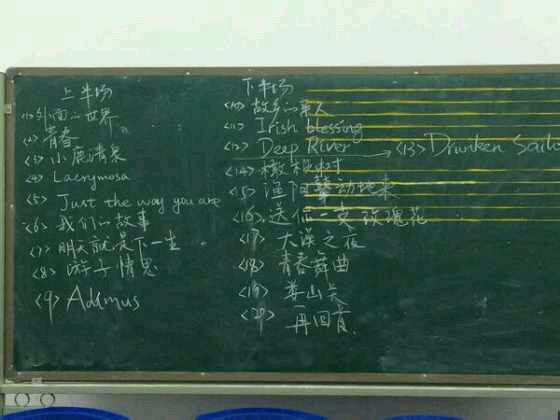 上半场
<1>外面的世界
<2>青春
<3>小鹿请来
<4>Lacrymosa
<5>Just the way you are
<6>我们的故事
<7>明天就是下一生
<8>游子情思
<9>Adiemus
下半场
<10>故乡的亲人
<11>Irish blessing
<12>Deep River → <13>Drunken Sailo
<14>橄榄树
<15>渔阳鼙动地来
<16>送你一束玫瑰花
<17>大漠之夜
<18>青春舞曲
<19>娄山关
<20>再回首